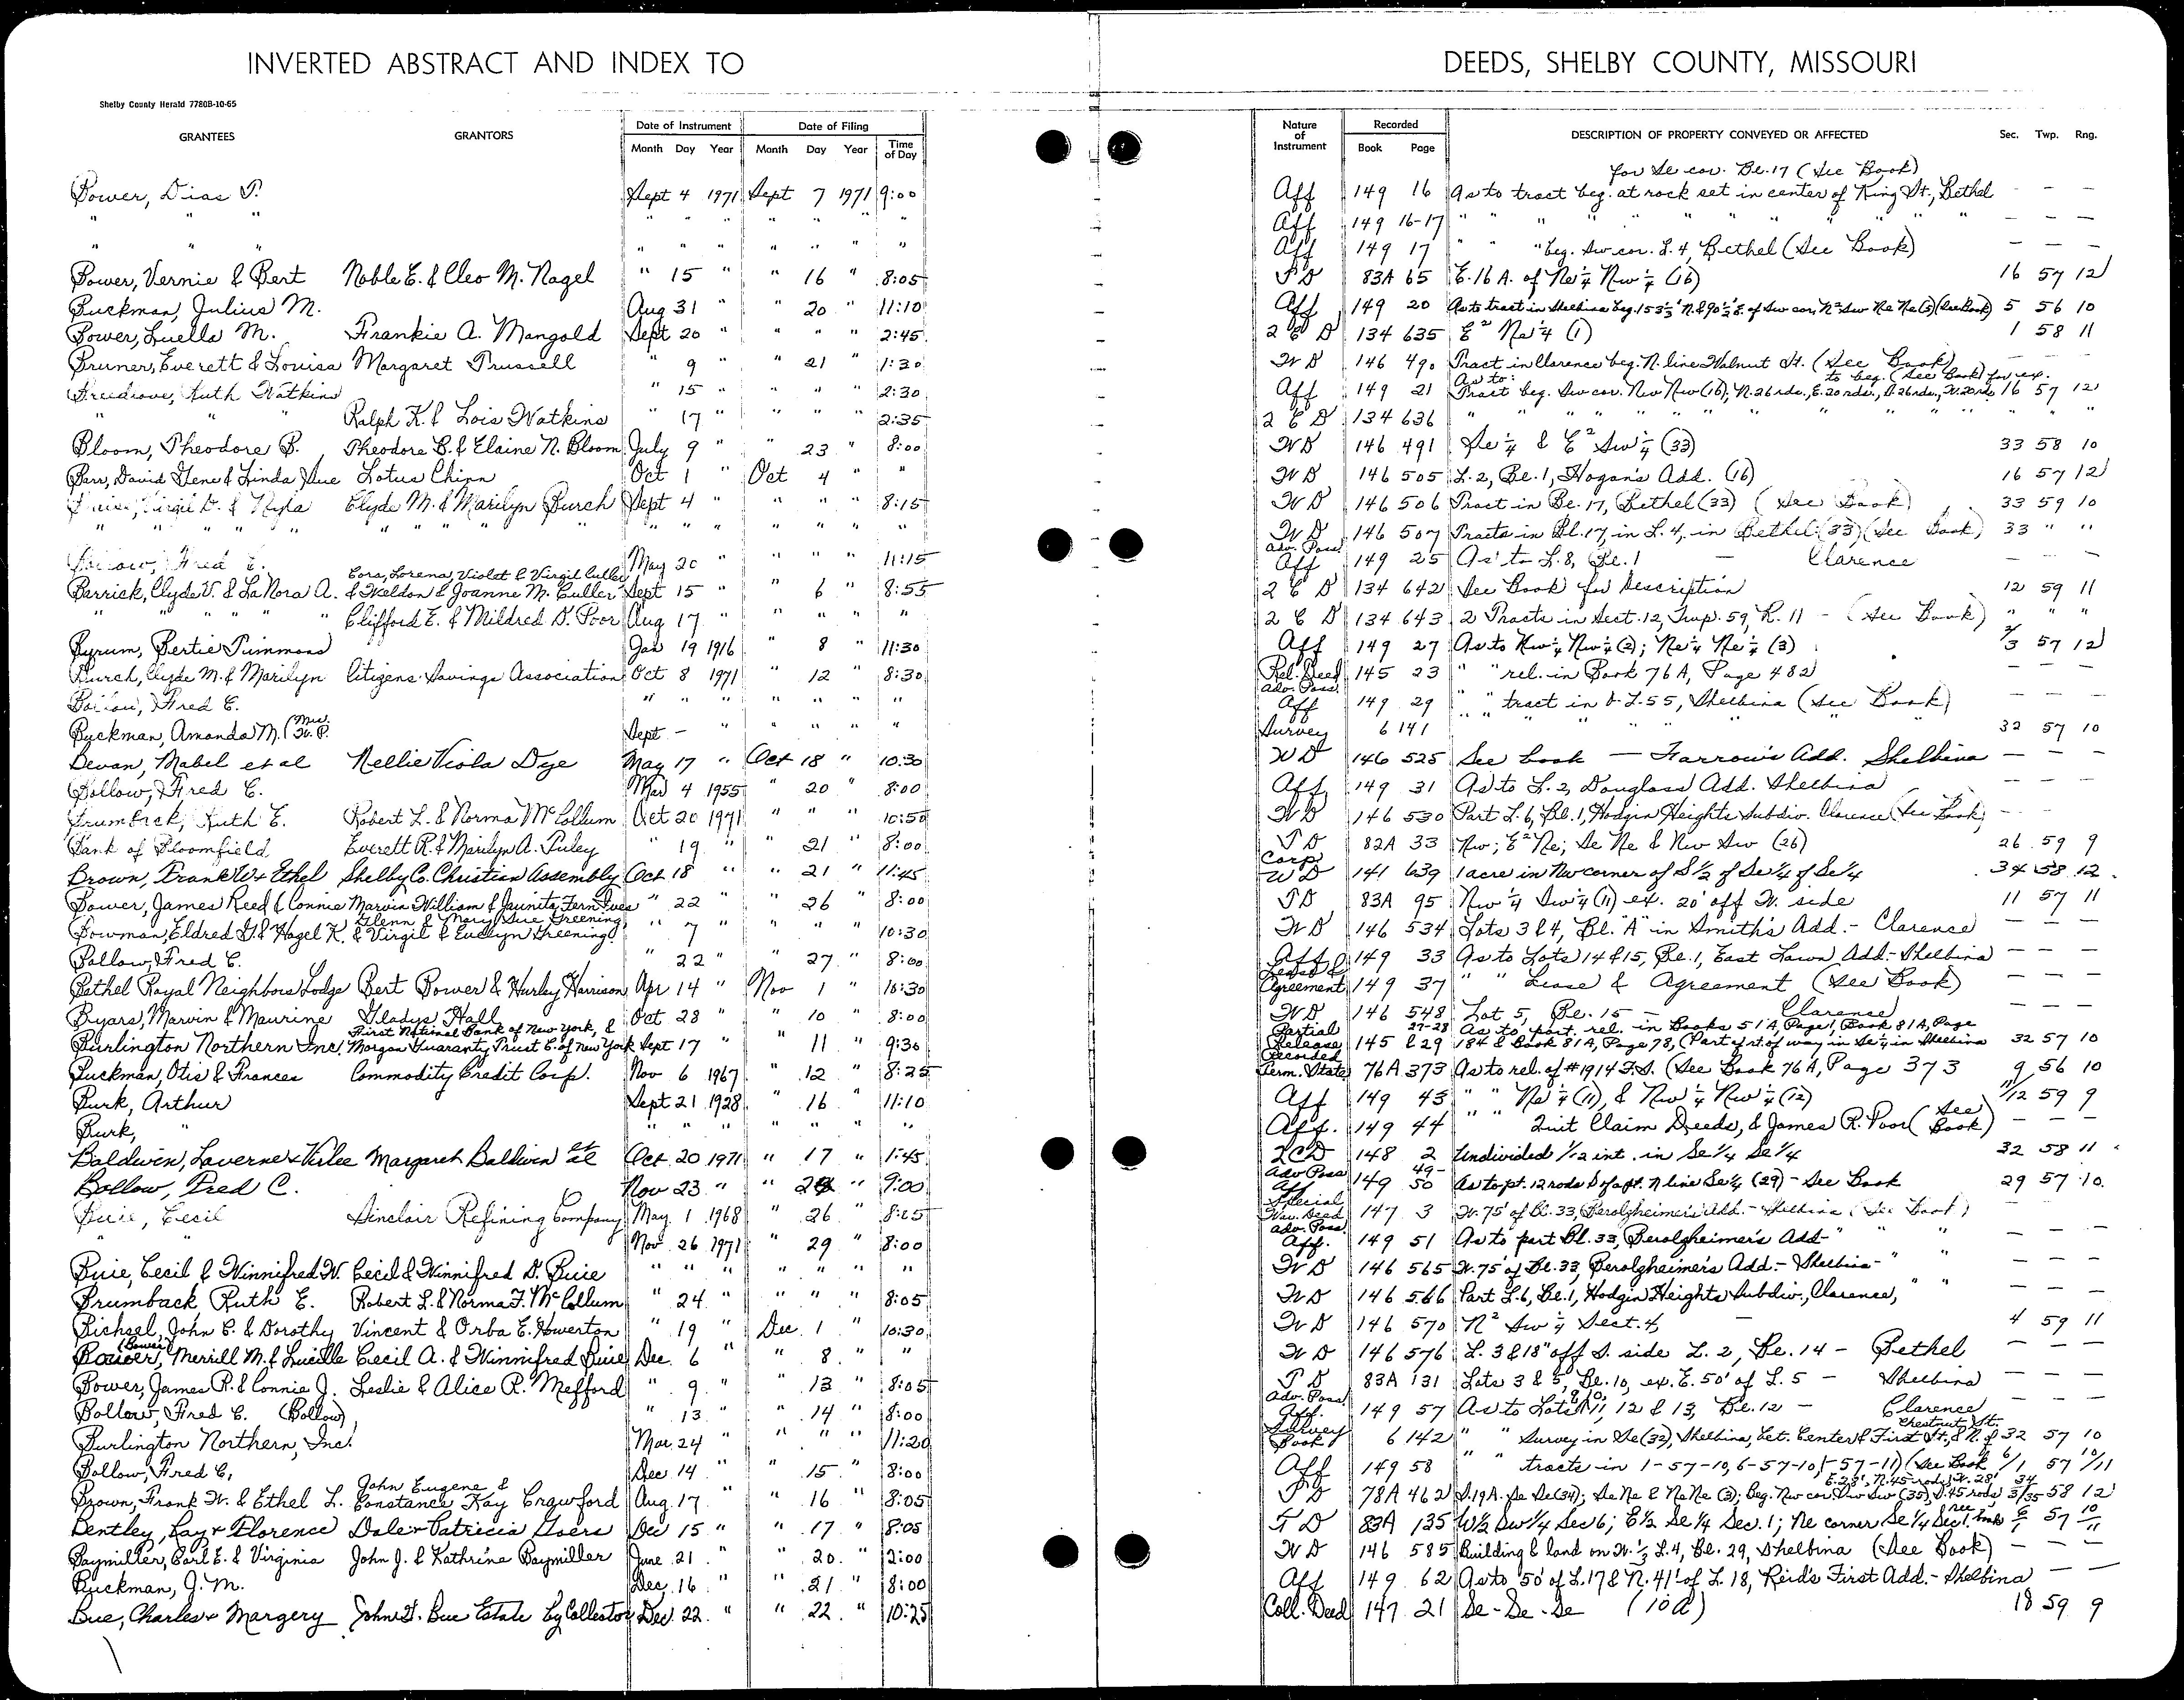 INVERTED ABSTRACT AND INDEX TO DEEDS, SHELBY COUNTY, MISSOURI
Shelby County Herald 7780B-10-65
GRANTEES GRANTORS Date of Instrument Date of Filing Time of Day Nature of Instrument Recorded DESCRIPTION OF PROPERTY CONVEYED OR AFFECTED Sec. Twp. Rng.
Month Day Year Month Day Year Book Page
for Se cor. Bl. 17 (See Book)
Bower, Dias T. Sept 4 1971 Sept 7 1971 9:00 Aff 149 16 As to tract beg. at rock set in center of King St., Bethel — —
" " " " " " " " " " Aff 149 16-17 " " " " " " " " " " — — —
" " " " " " " " " " Aff 149 17 " " " beg. Sw cor. L. 4, Bethel (See Book) — — —
Bower, Vernie & Bert Noble E. & Cleo M. Nagel " 15 " " 16 " 8:05 TD 83A 65 E. 16 A. of Ne 1/4 Nw 1/4 (16) 16 57 12
Buckman, Julius M. Aug 31 " " 20 " 11:10 Aff 149 20 As to tract in Shelbina beg. 153 1/3' N. & 90 1/2' E. of Sw cor. N² Sw Ne Ne (5) (See Book) 5 56 10
Bower, Luella M. Frankie A. Mangold Sept 20 " " " " 2:45 2 C D 134 635 E² Ne 1/4 (1) 1 58 11
Bruner, Everett & Louisa Margaret Trussell " 9 " " 21 " 1:30 WD 146 490 Tract in Clarence beg. N. line Walnut St. (See Book) — —
Ruth Watkins " 15 " " " " 2:30 Aff 149 21 As to: Tract beg. Sw cor. Nw Nw (16); N. 26 rds., E. 20 rds., S. 26 rds., W. 20 rds. to beg. (See Book) for ex. 16 57 12
" " Ralph K. & Lois Watkins " 17 " " " " 2:35 2 C D 134 636 " " " " " " " " " "
Bloom, Theodore B. Theodore B. & Elaine N. Bloom July 9 " " 23 " 8:00 WD 146 491 Se 1/4 & E² Sw 1/4 (33) 33 58 10
Barr, David Gene & Linda Sue Lotus Chinn Oct 1 " Oct 4 " " WD 146 505 L. 2, Bl. 1, Hogan's Add. (16) 16 57 12
Virgil D. & Nyla Clyde M. & Marilyn Burch Sept 4 " " " " 8:15 WD 146 506 Tract in Bl. 17, Bethel (33) (See Book) 33 59 10
" " " " " " " " " " " " " " WD 146 507 Tracts in Bl. 17, in L. 4, in Bethel (33) (See Book) 33 " "
Bollow, Fred C. May 20 " " " " 11:15 Adv. Poss. Aff 149 25 As to L. 8, Bl. 1 — Clarence — —
Cora, Lorena, Violet & Virgil Culler
Barrick, Clyde V. & LaNora A. & Weldon & Joanne M. Culler Sept 15 " " 6 " 8:55 2 C D 134 642 See Book for Description 12 59 11
" " " " " Clifford E. & Mildred D. Poor Aug 17 " " " " " 2 C D 134 643 2 Tracts in Sect. 12, Twp. 59, R. 11 — (See Book) " " "
Byrum, Bertie Timmons Jan 19 1916 " 8 " 11:30 Aff 149 27 As to Nw 1/4 Nw 1/4 (2); Ne 1/4 Ne 1/4 (3) 2/3 57 12
Burch, Clyde M. & Marilyn Citizens Savings Association Oct 8 1971 " 12 " 8:30 Rel. Deed 145 23 " " rel. in Book 76A, Page 482 — — —
Bollow, Fred C. " " " " " " " Adv. Poss. Aff 149 29 " " tract in O.L. 55, Shelbina (See Book) — — —
Buckman, Amanda M. (Mrs. W. P. Sept — " " " " " Survey 6 141 " " " " " 32 57 10
Bevan, Mabel et al Nellie Viola Dye May 17 " Oct 18 " 10:30 WD 146 525 See book — Farrow's Add. Shelbina — — —
Bollow, Fred C. Mar 4 1955 " 20 " 8:00 Aff 149 31 As to L. 2, Douglass Add. Shelbina — — —
Brumback, Ruth E. Robert L. & Norma McCollum Oct 20 1971 " " " 10:50 WD 146 530 Part L. 6, Bl. 1, Hodgin Heights Subdiv. Clarence (See Book) — —
Bank of Bloomfield Everett R. & Marilyn A. Tuley " 19 " " 21 " 8:00 TD 82A 33 Nw; E² Ne; Se Ne & Nw Sw (26) 26 59 9
Brown, Frank W & Ethel Shelby Co. Christian Assembly Oct 18 " " 21 " 11:45 Corp. WD 141 639 1 acre in Nw corner of S 1/2 of Se 1/4 of Se 1/4 34 58 12
Bower, James Reed & Connie Marvin William & Juanita Fern Ives " 22 " " 26 " 8:00 TD 83A 95 Nw 1/4 Sw 1/4 (11) ex. 20' off W. side 11 57 11
Glenn & Mary Sue Greening
Bowman, Eldred G. & Hazel K. & Virgil & Evelyn Greening " 7 " " " " 10:30 WD 146 534 Lots 3 & 4, Bl. "A" in Smith's Add. - Clarence — — —
Bollow, Fred C. " 22 " " 27 " 8:00 Aff 149 33 As to Lots 14 & 15, Bl. 1, East Lawn Add. - Shelbina — — —
Bethel Royal Neighbors Lodge Bert Bower & Hurley Harrison Apr 14 " Nov 1 " 10:30 Lease & Agreement 149 37 " " Lease & Agreement (See Book) — — —
Byars, Marvin & Maurine Gladys Hall Oct 28 " " 10 " 8:00 WD 146 548 Lot 5, Bl. 15 — Clarence — — —
First National Bank of New York, &
Burlington Northern Inc. Morgan Guaranty Trust C. of New York Sept 17 " " 11 " 9:30 Partial Release 145 27-28 & 29 As to part. rel. in Books 51A, Page 1, Book 81A, Page 184 & Book 81A, Page 78, (Part of rt. of way in Se 1/4 in Shelbina 32 57 10
Buckman, Otis & Frances Commodity Credit Corp. Nov 6 1967 " 12 " 8:25 Recorded Term. State 76A 373 As to rel. of #1914 F.S. (See Book 76A, Page 373 9 56 10
Burk, Arthur Sept 21 1928 " 16 " 11:10 Aff 149 43 " " Ne 1/4 (11), & Nw 1/4 Nw 1/4 (12) 11/12 59 9
Burk, " " " " " " " " Aff. 149 44 " " Quit Claim Deeds, & James R. Poor (See Book) — — —
Baldwin, Laverne & Virlee Margaret Baldwin et al Oct 20 1971 " 17 " 1:45 QCD 148 2 Undivided 1/12 int. in Se 1/4 Se 1/4 32 58 11
Bollow, Fred C. Nov 23 " " 24 " 9:00 Adv Poss Aff 149 49-50 As to pt. 12 rods S of apt. N line Se 1/4 (29) - See Book 29 57 10
Buie, Cecil Sinclair Refining Company May 1 1968 " 26 " 8:25 Special War. Deed 147 3 W. 75' of Bl. 33, Berolzheimer's Add. - Shelbina (See Book)
" " Nov. 26 1971 " 29 " 8:00 Adv. Poss. Aff. 149 51 As to part Bl. 33, Berolzheimer's Add - " — — —
Buie, Cecil & Winnifred W. Cecil & Winnifred D. Buie " " " " " " " WD 146 565 W. 75' of Bl. 33, Berolzheimer's Add. - Shelbina - " " — — —
Brumback, Ruth E. Robert L. & Norma F. McCollum " 24 " " " " 8:05 WD 146 566 Part L. 6, Bl. 1, Hodgin Heights Subdiv., Clarence, " " — — —
Bichsel, John C. & Dorothy Vincent & Orba E. Howerton " 19 " Dec. 1 " 10:30 WD 146 570 N² Sw 1/4 Sect. 4, — 4 59 11
(Bower)
Bower, Merrill M. & Lucille Cecil A. & Winnifred Buie Dec. 6 " " 8 " " WD 146 576 L. 3 & 18" off S. side L. 2, Bl. 14 - Bethel — — —
Bower, James R. & Connie J. Leslie & Alice R. Mefford " 9 " " 13 " 8:05 TD 83A 131 Lots 3 & 5, Bl. 10, ex. E. 50' of L. 5 — Shelbina — — —
Bollow, Fred C. (Bollow) " 13 " " 14 " 8:00 Adv. Poss. Aff. 149 57 As to Lots 9, 10, 11, 12 & 13, Bl. 12 — Clarence — — —
Burlington Northern, Inc. Mar. 24 " " " " 11:20 Survey Book 6 142 " " Survey in Se (32), Shelbina, bet. Center & First St., & N. of Chestnut St. 32 57 10
Bollow, Fred C. Dec. 14 " " 15 " 8:00 Aff 149 58 " " tracts in 1-57-10, 6-57-10, (-57-11) (See Book 6/1 57 10/11
John Eugene &
Brown, Frank W. & Ethel L. Constance Kay Crawford Aug. 17 " " 16 " 8:05 TD 78A 462 S. 19 A. Se Se (34); Se Ne & Ne Ne (3); Beg. Nw cor. Nw Sw (35), S. 45 rods E. 28', N. 45 rods, W. 28' 34 3/35 58 12
Bentley, Ray & Florence Dale & Patricia Goers Dec 15 " " 17 " 8:05 TD 83A 135 W 1/2 Sw 1/4 Sec 6; E 1/2 Se 1/4 Sec. 1; Ne corner Se 1/4 Sec 1. see book 6/1 57 10/11
Baymiller, Earl E. & Virginia John J. & Kathrine Baymiller June 21 " " 20 " 2:00 WD 146 585 Building & land on W. 1/3 L. 4, Bl. 29, Shelbina (See Book) — — —
Buckman, J. M. Dec. 16 " " 21 " 8:00 Aff 149 62 As to 50' of L. 17 & N. 41' of L. 18, Reid's First Add. - Shelbina — —
Bue, Charles & Margery John G. Bue Estate by Collector Dec. 22 " " 22 " 10:25 Coll. Deed 147 21 Se - Se - Se (10 a) 18 59 9